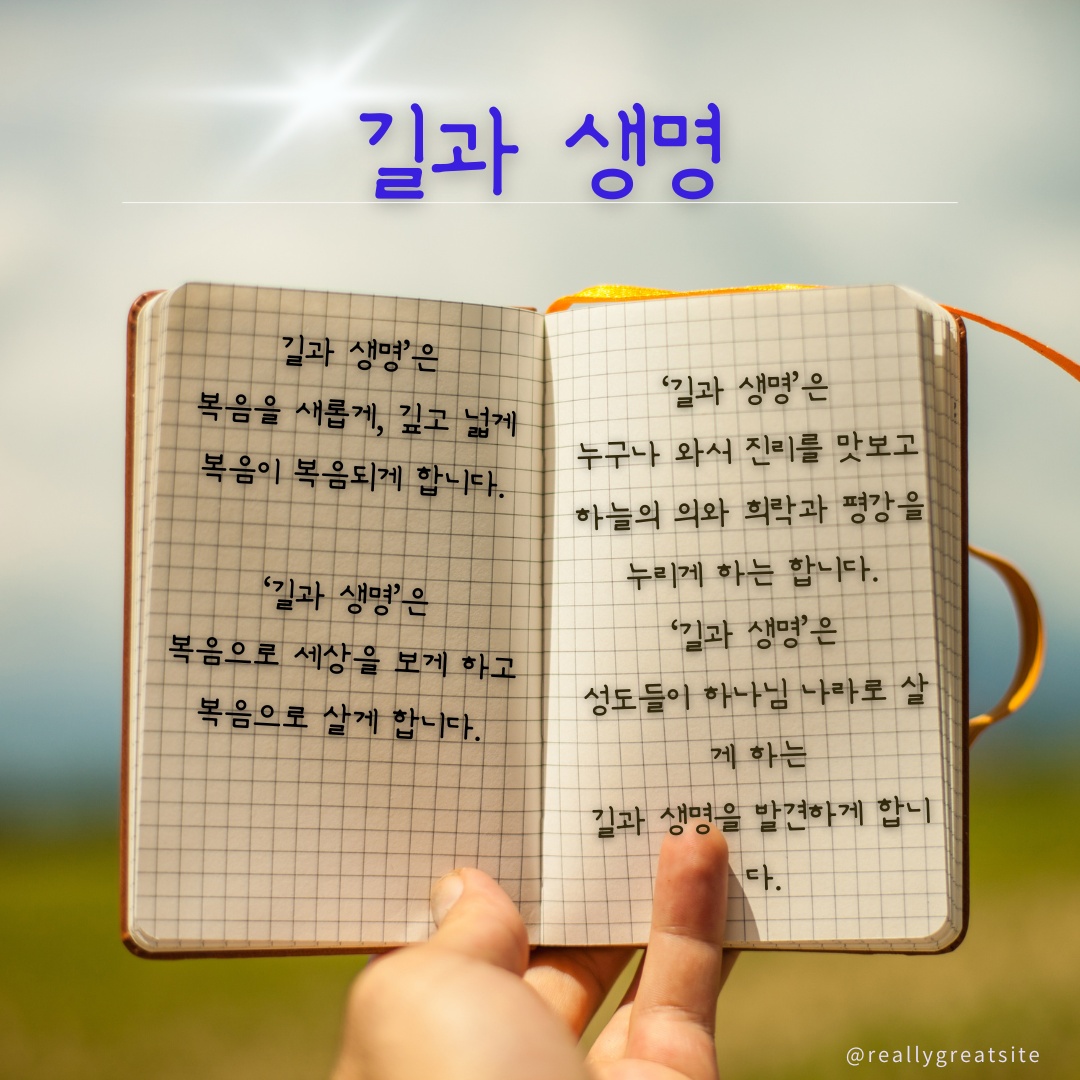 길과 생명
길과 생명’은
복음을 새롭게, 깊고 넓게
복음이 복음되게 합니다.
‘길과 생명’은
복음으로 세상을 보게 하고
복음으로 살게 합니다.
‘길과 생명’은
누구나 와서 진리를 맛보고
하늘의 의와 희락과 평강을
누리게 하는 합니다.
‘길과 생명’은
성도들이 하나님 나라로 살
게 하는
길과 생명을 발견하게 합니
다.
@reallygreatsite